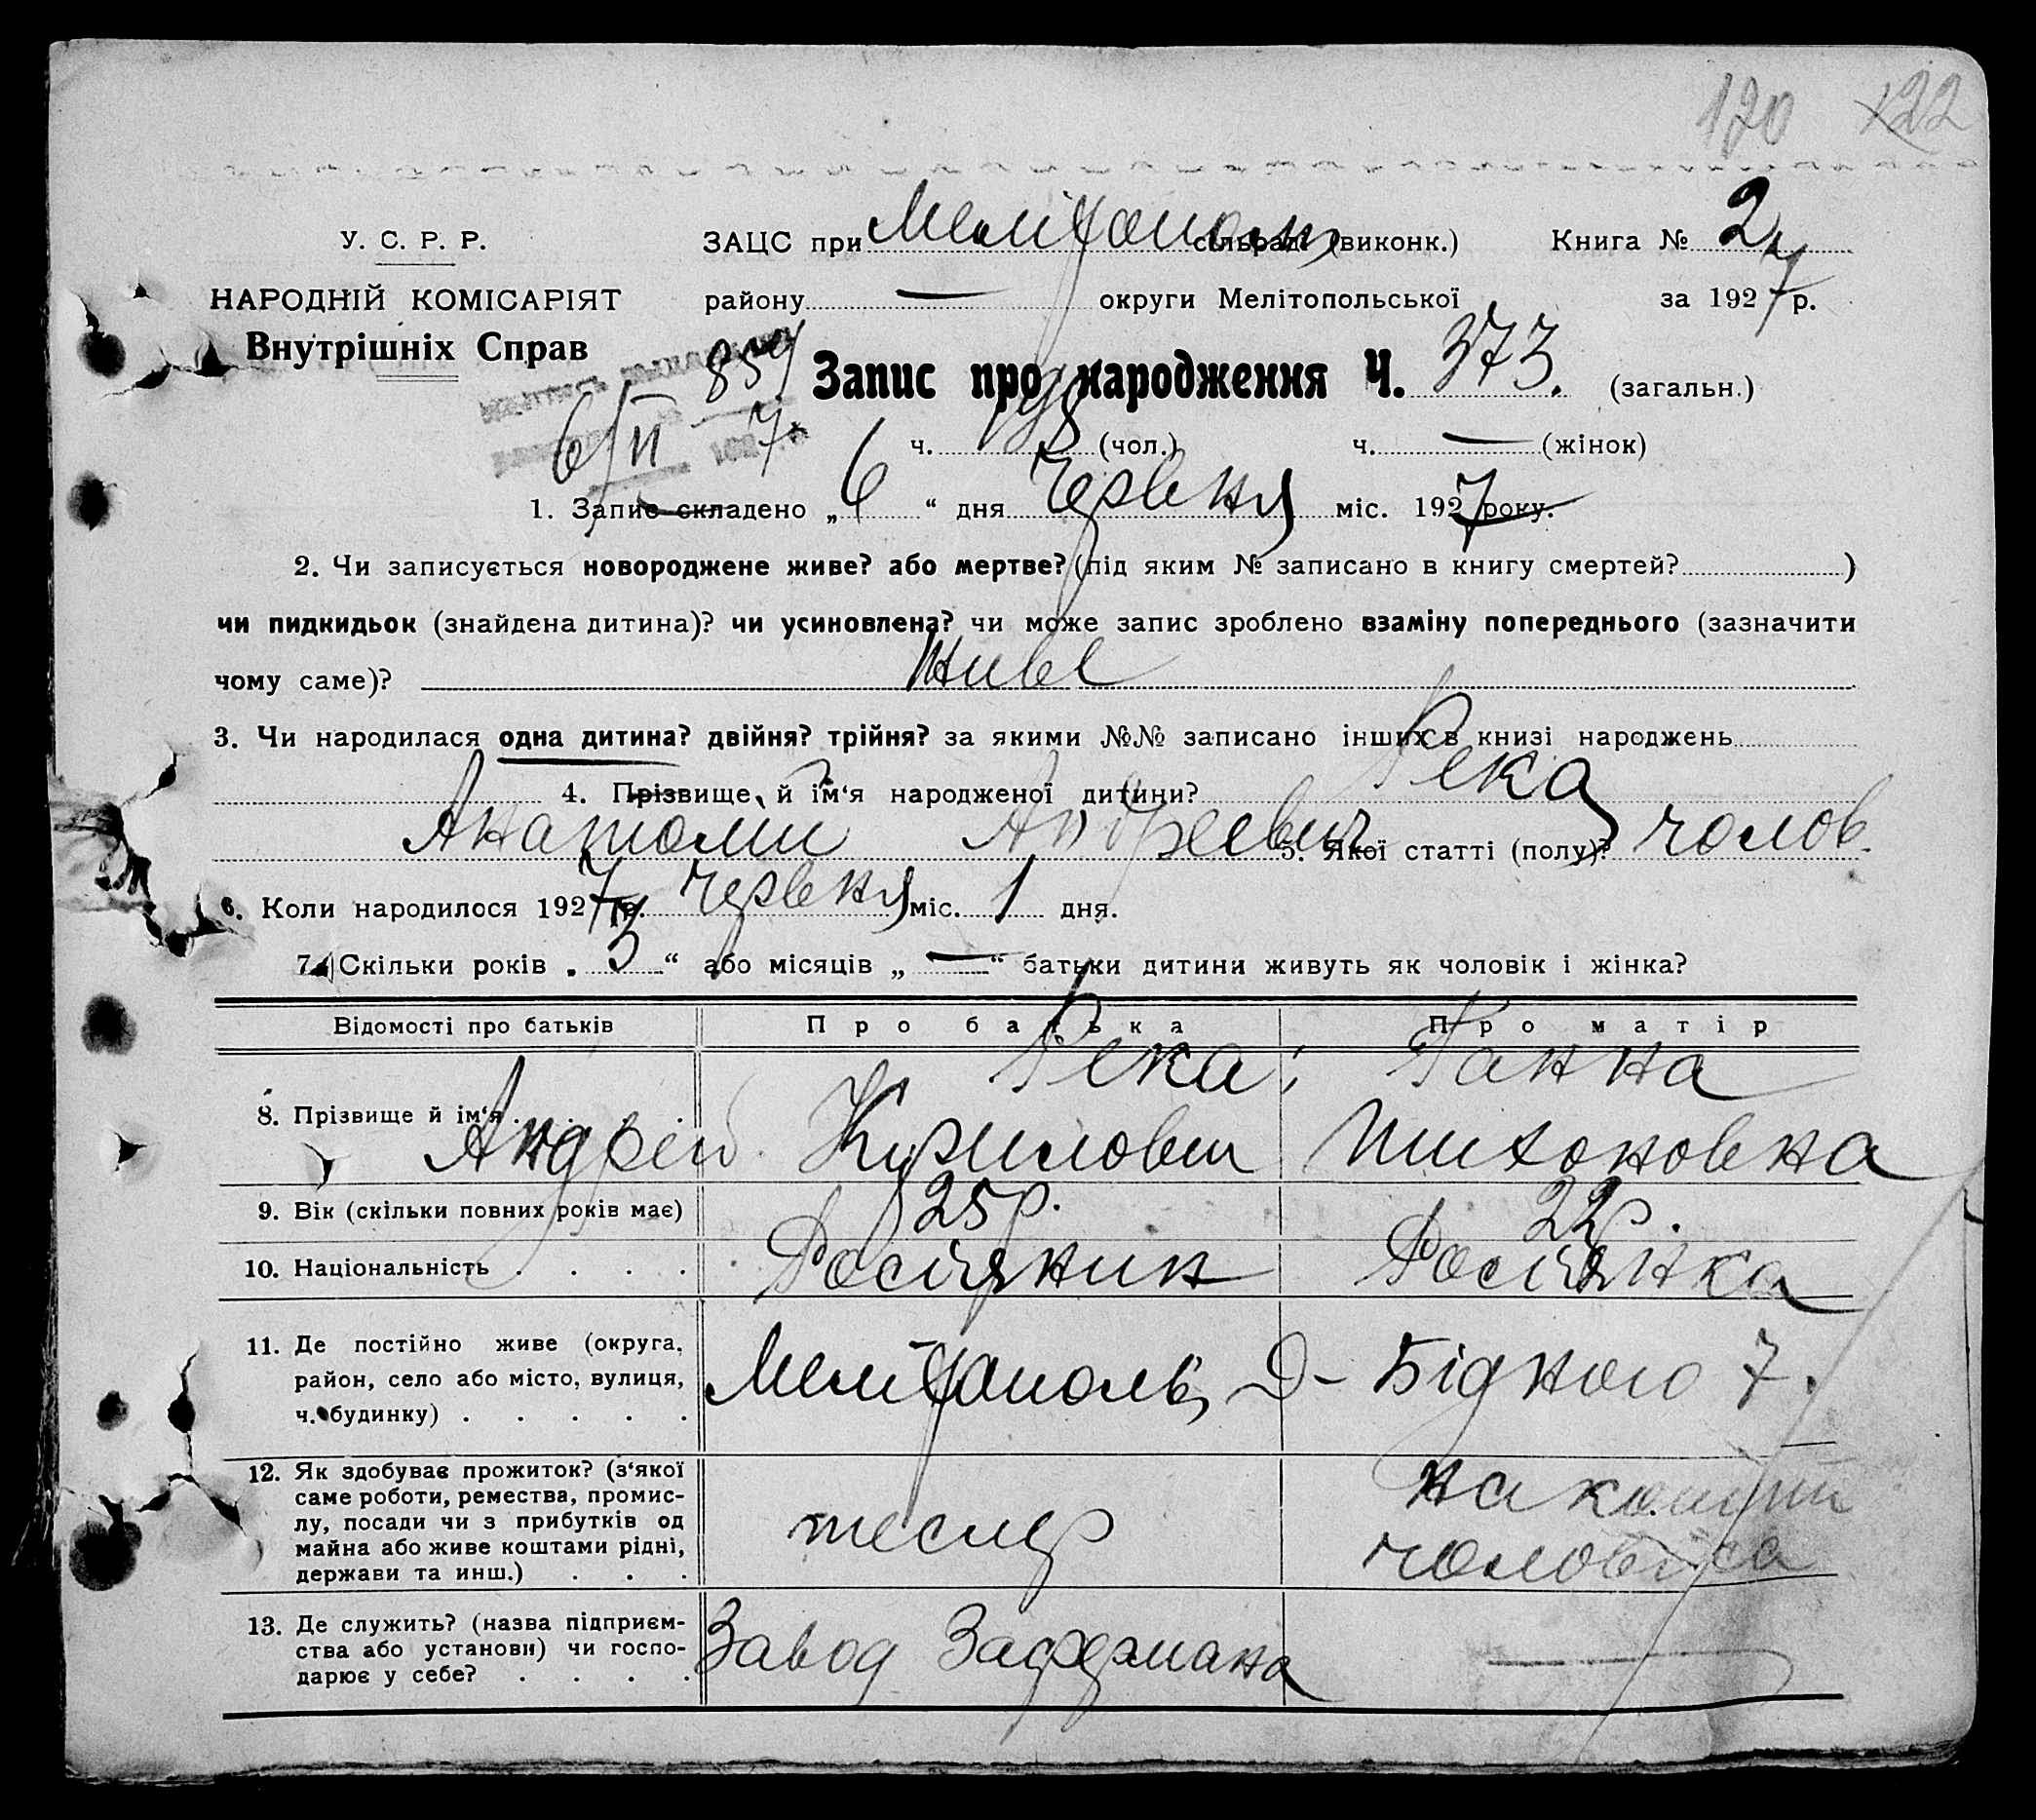 120 122
У. С. Р. Р.
НАРОДНІЙ КОМІСАРІЯТ
Внутрішніх Справ
ЗАЦС при Мелітополь сільраді (виконк.) Книга № 2
району — округи Мелітопольської за 1927 р.
859
Запис про народження Ч. 373. (загальн.)
6/VI 7
ч. 198 (чол.) ч. — (жінок)
1. Запис складено „6“ дня Червня міс. 1927 року.
2. Чи записується новороджене живе? або мертве? (під яким № записано в книгу смертей? )
чи пидкидьок (знайдена дитина)? чи усиновлена? чи може запис зроблено взаміну попереднього (зазначити
чому саме)? живе
3. Чи народилася одна дитина? двійня? трійня? за якими №№ записано інших в книзі народжень
4. Прізвище й ім‘я народженої дитини? Река
Анатоли Андреевич 5. Якої статті (полу)? чолов.
6. Коли народилося 1927 р. червня міс. 1 дня.
7. Скільки років „3“ або місяців „—“ батьки дитини живуть як чоловік і жінка?
Відомості про батьків Про батька Про матір
8. Прізвище й ім‘я Река Ганна
Андрей Кирилович Тихоновна
9. Вік (скільки повних років має) 25 р. 22 р.
10. Національність Росіянин Росіянка
11. Де постійно живе (округа,
район, село або місто, вулиця,
ч. будинку) Мелітополь, Д-Бідного 7.
12. Як здобуває прожиток? (з‘якої
саме роботи, ремества, промис-
лу, посади чи з прибутків од
майна або живе коштами рідні,
держави та инш.) тесляр на кошти
чоловіка
13. Де служить? (назва підприєм-
ства або установи) чи госпо-
дарює у себе? Завод Заффермана —